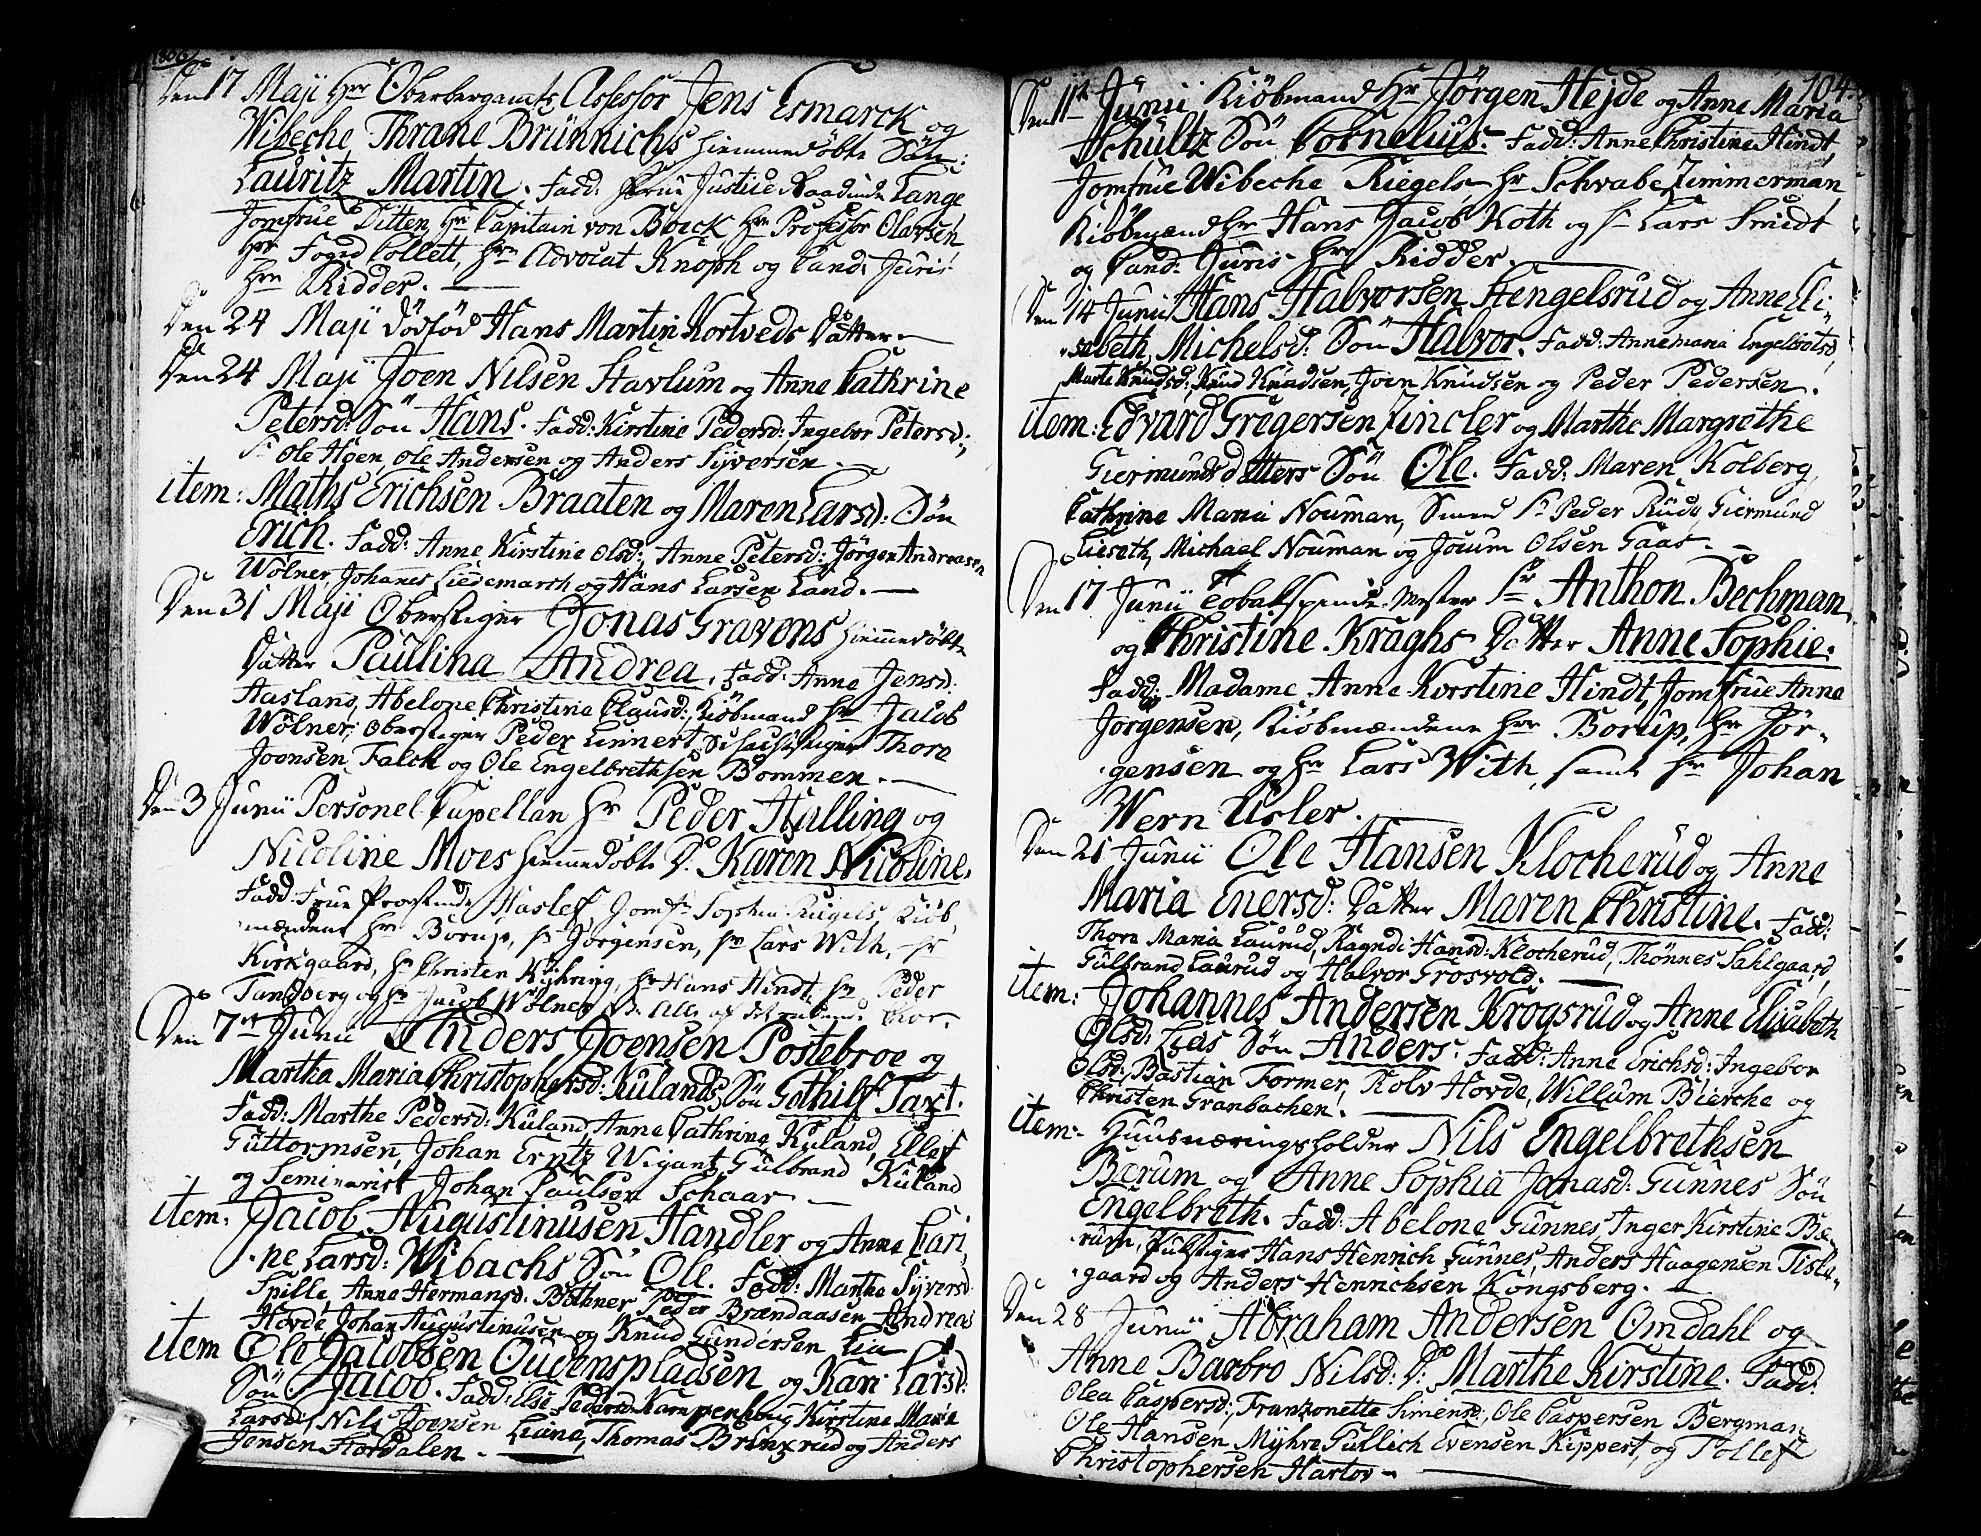 1806
Den 17 Maji Hrr Oberbergamts Assessor Jens Esmarck og
Wibeche Thrane Brünnichs hiemmedøbte Søn:
Lauritz Martin. Fadd: Frue Justice Raadinde Lange
Jomfrue Ditten, Hr Capitain von Boeck Hrr Professor Olavsen
Hrr Foged Collett, Hrr Advocat Knoph og Cand: Juris
Hrr Ridder.
Den 24 Maji dödfød Hans Martin Kortveds Datter.
Den 24 Maji Joen Nilsen Stavlum og Anne Cathrine
Petersd: Søn Hans. Fadd: Kirstine Pedersd: Ingebor Petersd:,
Sr Ole Hoen, Ole Andersen og Anders Syversen.
item: Maths Erichsen Braaten og Maren Larsd: Søn
Erich. Fadd: Anne Kirstine Olsd:, Anne Petersd: Jørgen Andreasen
Wölner, Johanes Liedemarch og Hans Larsen Land.
Den 31 Maji Oberstiger Jonas Gravens hiemmedøbte
Datter Paulina Andrea. Fadd: Anne Jensd:
Aasland, Abelone Christina Clausd:, Kiöbmand Hr Jacob
Wölner, Oberstiger Peder Linnert, Schachtstiger Thore
Joensen Falck og Ole Engelbrethsen Bommen.
Den 3 Junii Personel Capellan Hr Peder Hulling og
Nicoline Moes hiemmedøbte D: Karen Nicoline.
Fadd: Frue Provstinde Haslef, Jomfr Sophia Riegels, Kiöb,
mændene Hrr Borup, Hr Jørgensen, Hr Lars With, Hr
Kirkgaard, Hr Christen Kyhring, Hr Hans Hindt, Hr Peder
Tandberg og Hr Jacob Wölner
Den 7de Junii Anders Joensen Postebroe og
Martha Maria Christophersd: Kulands Søn Gothilf Taxt.
Fadd: Marthe Pedersd: Kuland, Anne Cathrine Kuland, Ellef
Guttormsen, Johan Erntz Wigant, Gulbrand Kuland
og Seminarist Johan Paulsen Schaar
item: Jacob Augustinusen Handler og Anne Cari,
ne Larsd: Wibachs Søn Ole. Fadd: Marthe Syversd:
Spille, Anne Hermansd: Bothner, Peder Brændaasen, Andreas
Hovde Johan Augustinusen og Knud Gundersen Lia
item Ole Jacobsen Ouvenspladsen og Kari Larsd:
Søn Jacob. Fadd: Else Pedersd: Kampenhoug Kirstine Marie
Larsd:, Nils Joensen Liane, Thomas Brinxrud og Anders
Jensen Stordalen.
104.
Den 11te Junii Kiöbmand Hr Jörgen Hejde og Anne Maria
Schultz Søn Cornelius. Fadd: Anne Christine Hindt,
Jomfrue Wibeche Riegels, Hr Schwabe, Zimmerman,
Kiöbmænd Hr Hans Jacob Koth og Sr Lars Smidt
og Cand: Juris Hrr Ridder.
Den 14 Junii Hans Halvorsen Stengelsrud og Anne Eli-
sabeth Michelsd: Søn Halvor. Fadd: Annemaria Engelbretsd
Marte Knudsd:, Knud Knudsen, Joen Knudsen og Peder Pedersen.
item: Edvard Gregersen Zincler og Marthe Margrethe
Giermundsdatters Søn Ole. Fadd: Maren Kolberg,
Cathrine Maria Nouman, Smed Sr Peder Rudi, Giermund
Lieseth, Michael Nouman og Joeum Olsen Gaas.
Den 17 Junii Mester Sr Anthon Bechman
og Christine Kraghs Datter Anne Sophie.
Fadd: Madame Anne Korstine Hindt, Jomfrue Anne
Jørgensen, Kiöbmændene Hrr Borup, Hr Jør-
gensen og Hr Lars With, samt Hr Johan
Wern Usler.
Den 21 Junii Ole Hansen Klocherud og Anne
Maria Eversd: Datter Maren Christine. Fadd:
Thore Maria Laurud, Ragndi Hansd: Klocherud, Thønnes Sahlgaard,
Gulbrand Laurud og Halvor Grosvold.
item: Johannes Andersen Krogsrud og Anne Elisabeth
Olsd: Lias Søn Anders. Fadd: Anne Erichsd: Ingebor
Olsd: Bastian Former, Rolv Hovde, Willum Bierche og
Christen Granbachen.
item: Huusnæringsholder Nils Engelbrethsen
Bærum og Anne Sophia Jonasd: Gunnes Søn
Engelbreth. Fadd: Abelone Gunnes, Inger Kirstine Bæ-
rum, Hans Henrich Gunnes, Anders Haagensen Tisle-
gaard og Anders Henrichsen Kongsberg.
Den 28 Junii Abraham Andersen Omdahl og
Anne Barbro Nilsd: D: Marthe Kirstine. Fadd:
Olea Caspersd: Franzonette Simensd:, Ole Caspersen Bergman
Ole Hansen Myhre Gullich Evensen Kippert, og Tollef
Christophersen Hartov